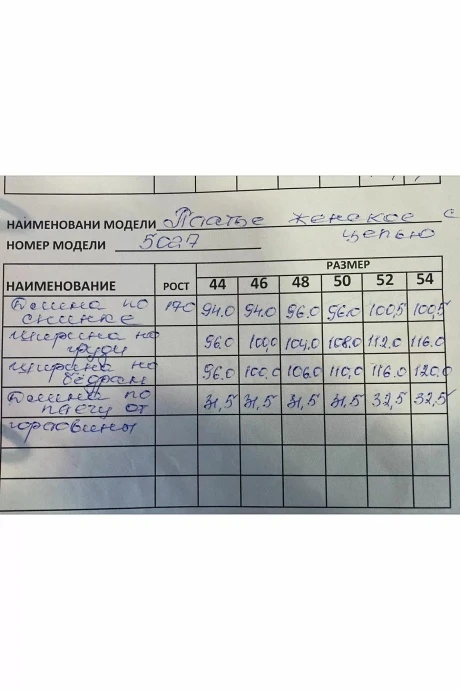 НАИМЕНОВАНИ МОДЕЛИ Платье женское с
цепью
НОМЕР МОДЕЛИ 5027
НАИМЕНОВАНИЕ РОСТ РАЗМЕР
44 46 48 50 52 54
Длина по спинке 170 94.0 94.0 96.0 96.0 100,5 100,5
Ширина по груди 96.0 100,0 104,0 108.0 112.0 116.0
Ширина по бёдрам 96.0 100.0 106.0 110,0 116.0 120,0
Длина по плечу от горловины 31,5 31,5 31,5 31,5 32,5 32,5